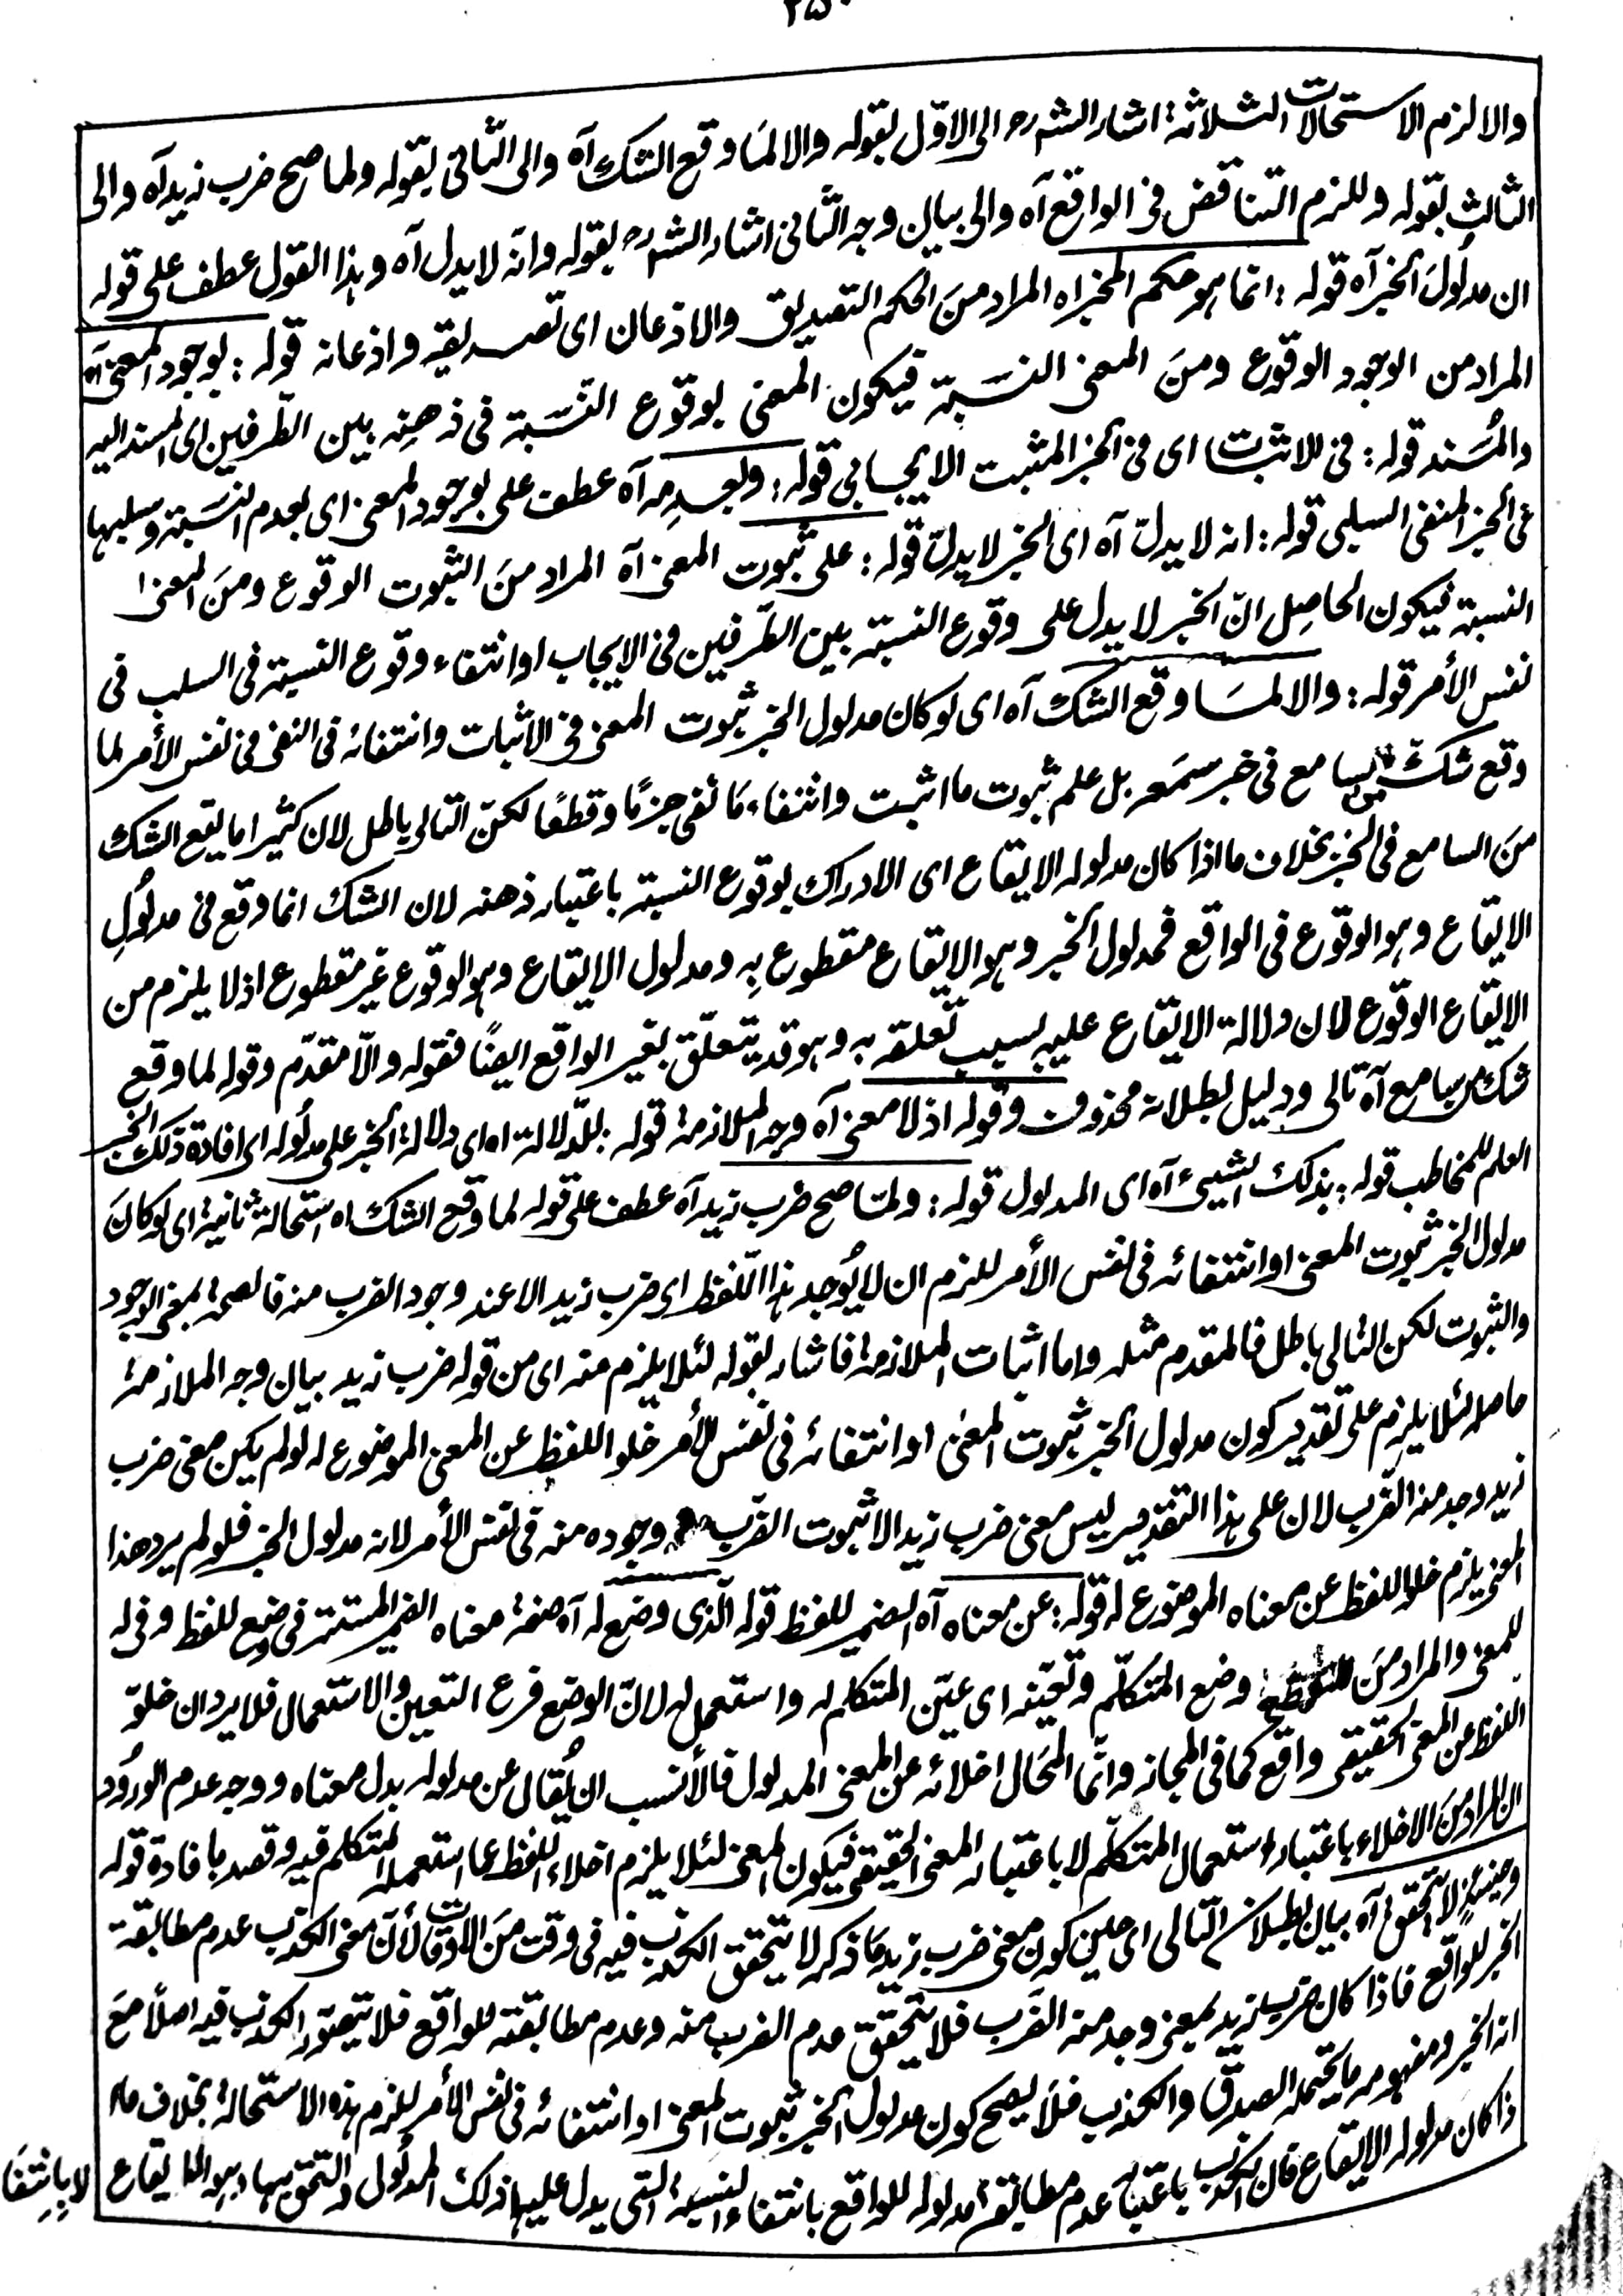 ٢٥٠
والا لزم الاستحالات الثلاثة: اشار الشرح الى الاوّل بقوله والا لمَا وقع الشك آه والى الثّانى بقوله ولما صح ضرب زيد آه والى
الثالث بقوله وللزم التناقض فى الواقع آه والى بيان وجه الثّانى اشار الشرح بقوله وانه لا يدل آه وہذا القول عطف على قوله
ان مدلُولَ الخبر آه قوله: انما ہو حكم المخبر اه المراد منَ الحكم التصديق والاذعان اى تصديقه واذعانه قوله: بوجود المعنىٰ آه
المراد من الوجود الوقوع ومنَ المعنى النسَبة فيكون المعنى بوقوع النّسَبة فى ذهنِه بين الطّرفين اى المسند اليه
والمُسند قوله: فى الاثبات اى فى الخبر المثبت الايجابى قوله: وبعدمِه آه عطف على بوجود المعنى اى بعدم النسَبة وسلبها
فى الخبر المنفى السلبى قوله: انه لا يدلّ آه اى الخبر لا يدلّ قوله: على ثبوت المعنى آه المراد منَ الثبوت الوقوع ومنَ المعنىٰ
النسبة فيكون الحاصِل انّ الخبر لا يدل على وقوع النسبة بين الطّرفين فى الايجاب او انتفاء وقوع النسبة فى السلب فى
نفس الأمر قوله: والا لمسَا وقع الشك آه اى لو كان مدلول الخبر ثبوت المعنى فى الاثبات وانتفائه فى النفى فى نفس الأمر لما
وقع شكّ من سامع فى خبر سمَعه بل علم ثبوت ما اثبت وانتفاء مَا نفى جزمًا وقطعًا لكنّ التالى باطل لان كثيرا ما يقع الشك
منَ السامع فى الخبر بخلاف ما اذا كان مدلوله الايقاع اى الادراك بوقوع النسبة باعتبار ذهنه لان الشك انما وقع فى مدلُولِ
الايقاع وہو الوقوع فى الواقع فمدلول الخبر وہو الايقاع مقطوع بِه ومدلول الايقاع وہو الوقوع غير مقطوع اذ لا يلزم من
الايقاع الوقوع لان دلالة الايقاع عليه بسبب تعلقه به وہو قد يتعلّق بغير الواقع ايضًا فقوله والّا مقدّم وقوله لما وقع
شك من سامع آه تالى ودليل بطلانه محذوف وقوله اذ لا معنى آه وجه الملازمة قوله: للدّلالة اه اى دلالة الخبر على مدلُوله اى افادة ذلك الخبر
العلم للمخاطب قوله: بذلك الشيئ آه اى المدلول قوله: ولمّا صح ضرب زيد آه عطف على قوله لما وقع الشك اه استحالة ثانية اى لو كانَ
مدلول الخبر ثبوت المعنى او انتفائه فى نفس الأمر للزم ان لا يُوجد ہذا اللّفظ اى ضرب زيد الا عند وجود الضرب منه فالصحة بمعنى الوجود
والثبوت لكن التالى باطل فالمقدم مثله واما اثبات الملازمة فاشار بقوله لئلا يلزم منه اى من قوله ضرب زيد بيان وجه الملازمة
حاصله لئلا يلزم على تقدير كون مدلول الخبر ثبوت المعنىٰ او انتفائه فى نفس الأمر خلو اللفظ عن المعنى الموضوع له لو لم يكن معنى ضرب
زيد وجد منه الضّرب لان على ہذا التقدير ليس معنى ضرب زيد الا ثبوت الضّرب وجوده منه فى نفس الأمر لانه مدلول الخبر فلو لم يرد هذا
المعنى يلزم خلو اللفظ عن معناه الموضوع له قوله: عن معناه آه الضمير للفظ قوله الّذى وضع له آه صفة معناه الضمير المستتر فى وضع للفظ وفى له
للمعنى والمراد منَ وضع المتكلّم وتعيّنه اى عيّن المتكلم له واستعمل له لانّ الوضع فرع التعين والاستعمال فلا يرد ان خلوّ
اللفظ عن المعنى الحقيقى واقع كما فى المجاز وانّما المحَال اخلائه عن المعنى المدلول فالأنسب ان يُقال عن مدلوله بدل معناه ووجه عدم الورُود
ان المراد منَ الاخلاء باعتبار استعمال المتكلّم لا باعتبار المعنى الحقيقى فيكون المعنى لئلا يلزم اخلاء اللفظ عما استعمله المتكلم فيه وقصد بافادة قوله
وحينئذٍ لا يتحقق آه بيان بطلان التّالى اى حين كون معنى ضرب زيد مَا ذكر لا يتحقق الكذب فيه فى وقت منَ الاوقات لأنّ معنى الكذب عدم مطابقة
الخبر للواقع فاذا كان ضرب زيد بمعنى وجد منه الضَرب فلا يتحقق عدم الضرب منه وعدم مطابقته للواقع فلا يتصوّر الكذب فيه اصلًا معَ
انه الخبر ومفہومه ما يحتمل الصدق والكذب فلَا يصح كون مدلول الخبر ثبوت المعنى او انتفائه فى نفس الأمر للزم ہذه الاستحالة بخلاف ما
اذا كان مدلوله الايقاع فان الكذب باعتبار عدم مطابقة مدلوله للواقع بانتفاء النسبة التى يدل عليها ذلك المدلُول والتحقق بها وہو الايقاع
لا بانتفَا